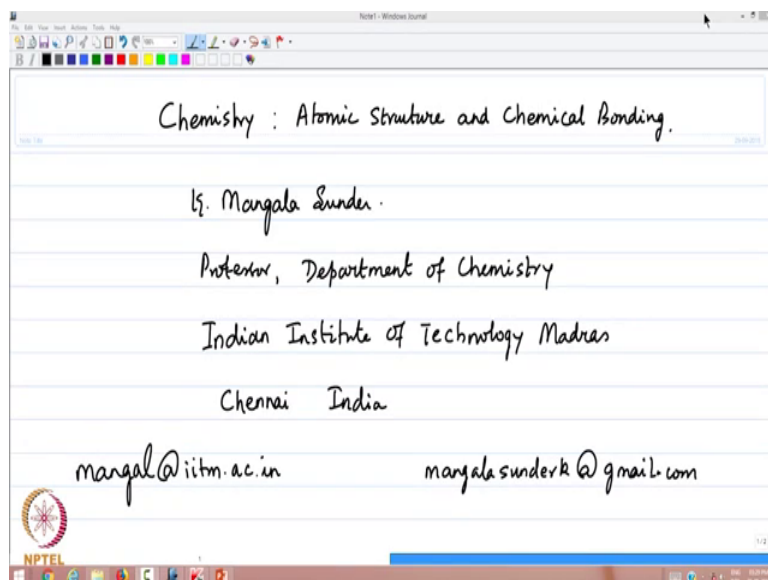 Note1 - Windows Journal
File Edit View Insert Actions Tools Help
B I
Chemistry : Atomic Structure and Chemical Bonding.
K. Mangala Sunder.
Professor, Department of Chemistry
Indian Institute of Technology Madras
Chennai India
mangal@iitm.ac.in mangalasunderk@gmail.com
NPTEL
1
1/2
ENG